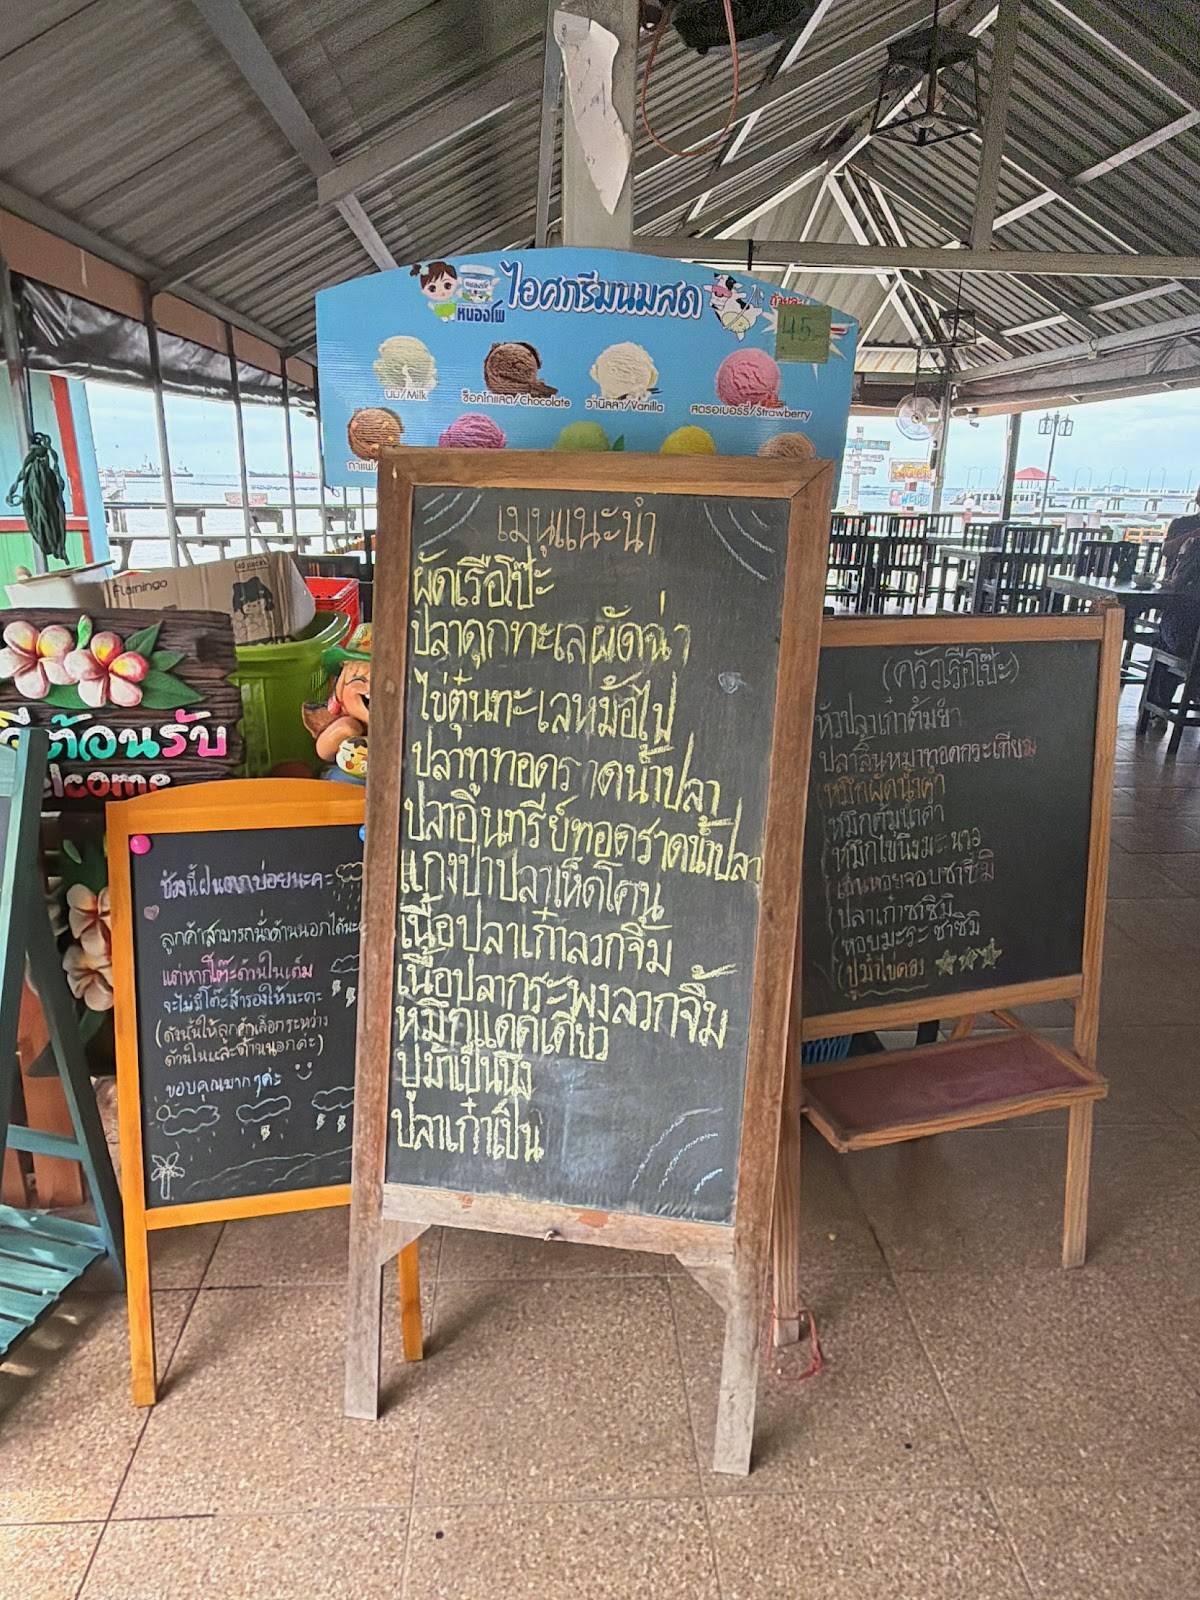 ไอศกรีมนมสด
หนองโพ
45.-
นม/Milk
ช็อคโกแลต/Chocolate
วานิลลา/Vanilla
สตรอเบอร์รี่/Strawberry
กาแฟ/
Flamingo
ต้อนรับ
elcome
เมนูแนะนำ
ผัดเรือโป๊ะ
ปลาดุกทะเลผัดฉ่า
ไข่ตุ๋นทะเลหม้อไฟ
ปลาทูทอดราดน้ำปลา
ปลาอินทรีย์ทอดราดน้ำปลา
แกงป่าปลาเห็ดโคน
เนื้อปลาเก๋าลวกจิ้ม
เนื้อปลากระพงลวกจิ้ม
หมึกแดดเดียว
ปูม้าเป็นนึ่ง
ปลาเก๋าเป็น
ช่วงนี้ฝนตกบ่อยนะคะ
ลูกค้าสามารถนั่งด้านนอกได้นะ
แต่หากโต๊ะด้านในเต็ม
จะไม่มีโต๊ะสำรองให้นะคะ
(ดังนั้นให้ลูกค้าเลือกระหว่าง
ด้านในและด้านนอกค่ะ)
ขอบคุณมากๆค่ะ
(ครัวเรือโป๊ะ)
หัวปลาเก๋าต้มยำ
ปลาลิ้นหมาทอดกระเทียม
(หมึกผัดน้ำดำ
(หมึกต้มน้ำดำ
(หมึกไข่นึ่งมะนาว
(เอ็นหอยจอบซาชิมิ
(ปลาเก๋าซาชิมิ
(หอยมะระ ซาชิมิ
(ปูม้าไข่ดอง